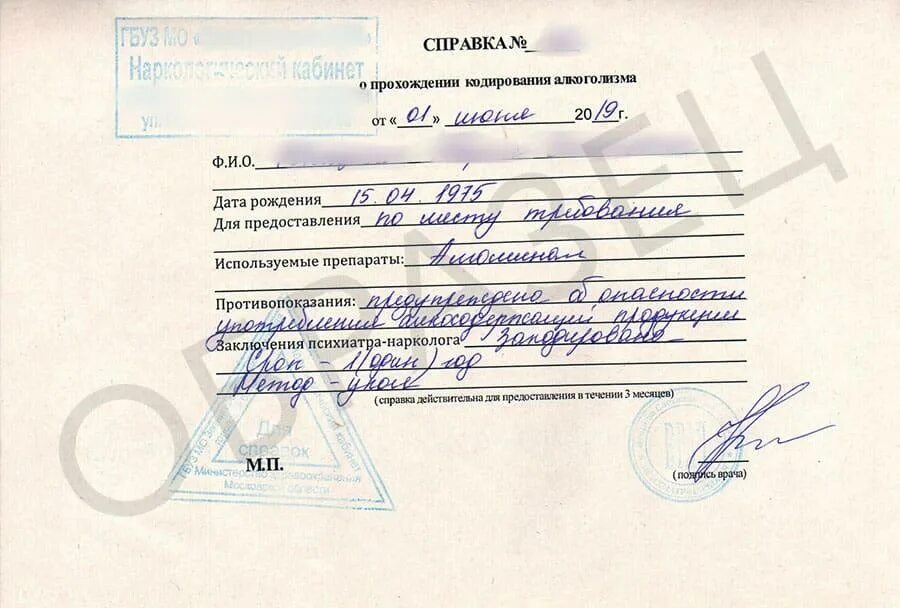 ГБУЗ МО «
Наркологический кабинет
ул.
СПРАВКА №
о прохождении кодирования алкоголизма
от « 01 » июня 2019 г.
Ф.И.О.
Дата рождения 15.04.1975
Для предоставления по месту требования
Используемые препараты:
Противопоказания: предупреждено об опасности
употребления продукции
Заключения психиатра-нарколога
Срок - 1 (один) год
Метод - укол
(справка действительна для предоставления в течении 3 месяцев)
Для
справок
ГБУЗ МО
кабинет
Министерство здравоохранения
Московской области
М.П.
(подпись врача)
ОБРАЗЕЦ